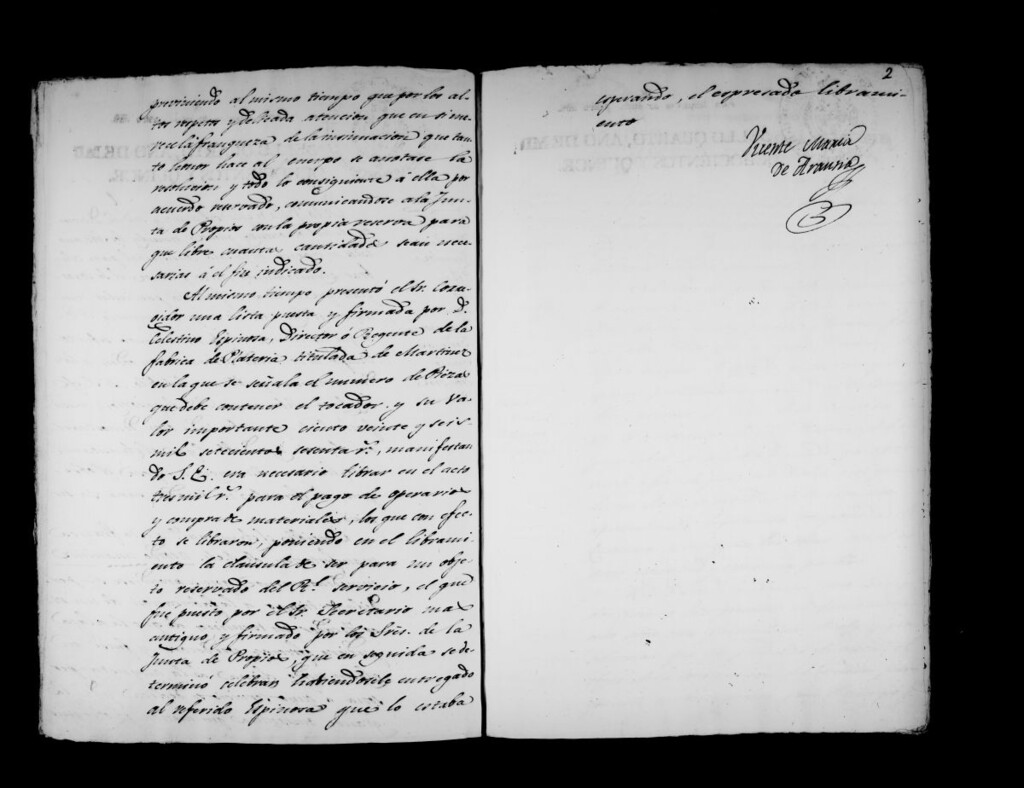 previniendo al mismo tiempo que por los al-
tos respetos y delicada atencion que en si me-
rece la franqueza de la insinuacion que tan-
to honor hace al cuerpo se anotase la
resolucion y todo lo consiguiente á ella por
acuerdo reservado, comunicandose a la Jun-
ta de Propios con la propia reserva para
que libre cuantas cantidades sean nece-
sarias á el fin indicado.
Al mismo tiempo presentó el Sr. Corre-
gidor una lista puesta y firmada por D.
Celestino Espinosa, Director ó Regente de la
fabrica de Plateria titulada de Martinez
en la que se señala el numero de Piezas
que debe contener el tocador y su va-
lor importante ciento veinte y seis
mil setecientos sesenta rs., manifestan-
do S.E. era necesario librar en el acto
tres mil rs. para el pago de operarios
y compra de materiales, los que con efec-
to se libraron, poniendo en el librami-
ento la clausula de ser para un obje-
to reservado del Rl. servicio, el que
fue puesto por el Sr. Secretario mas
antiguo, y firmado por los Sres. de la
Junta de Propios, que en seguida se de-
terminó celebrar habiendosele entregado
al referido Espinosa que lo estaba
2
esperando, el espresado librami-
ento
Vicente Maria
de